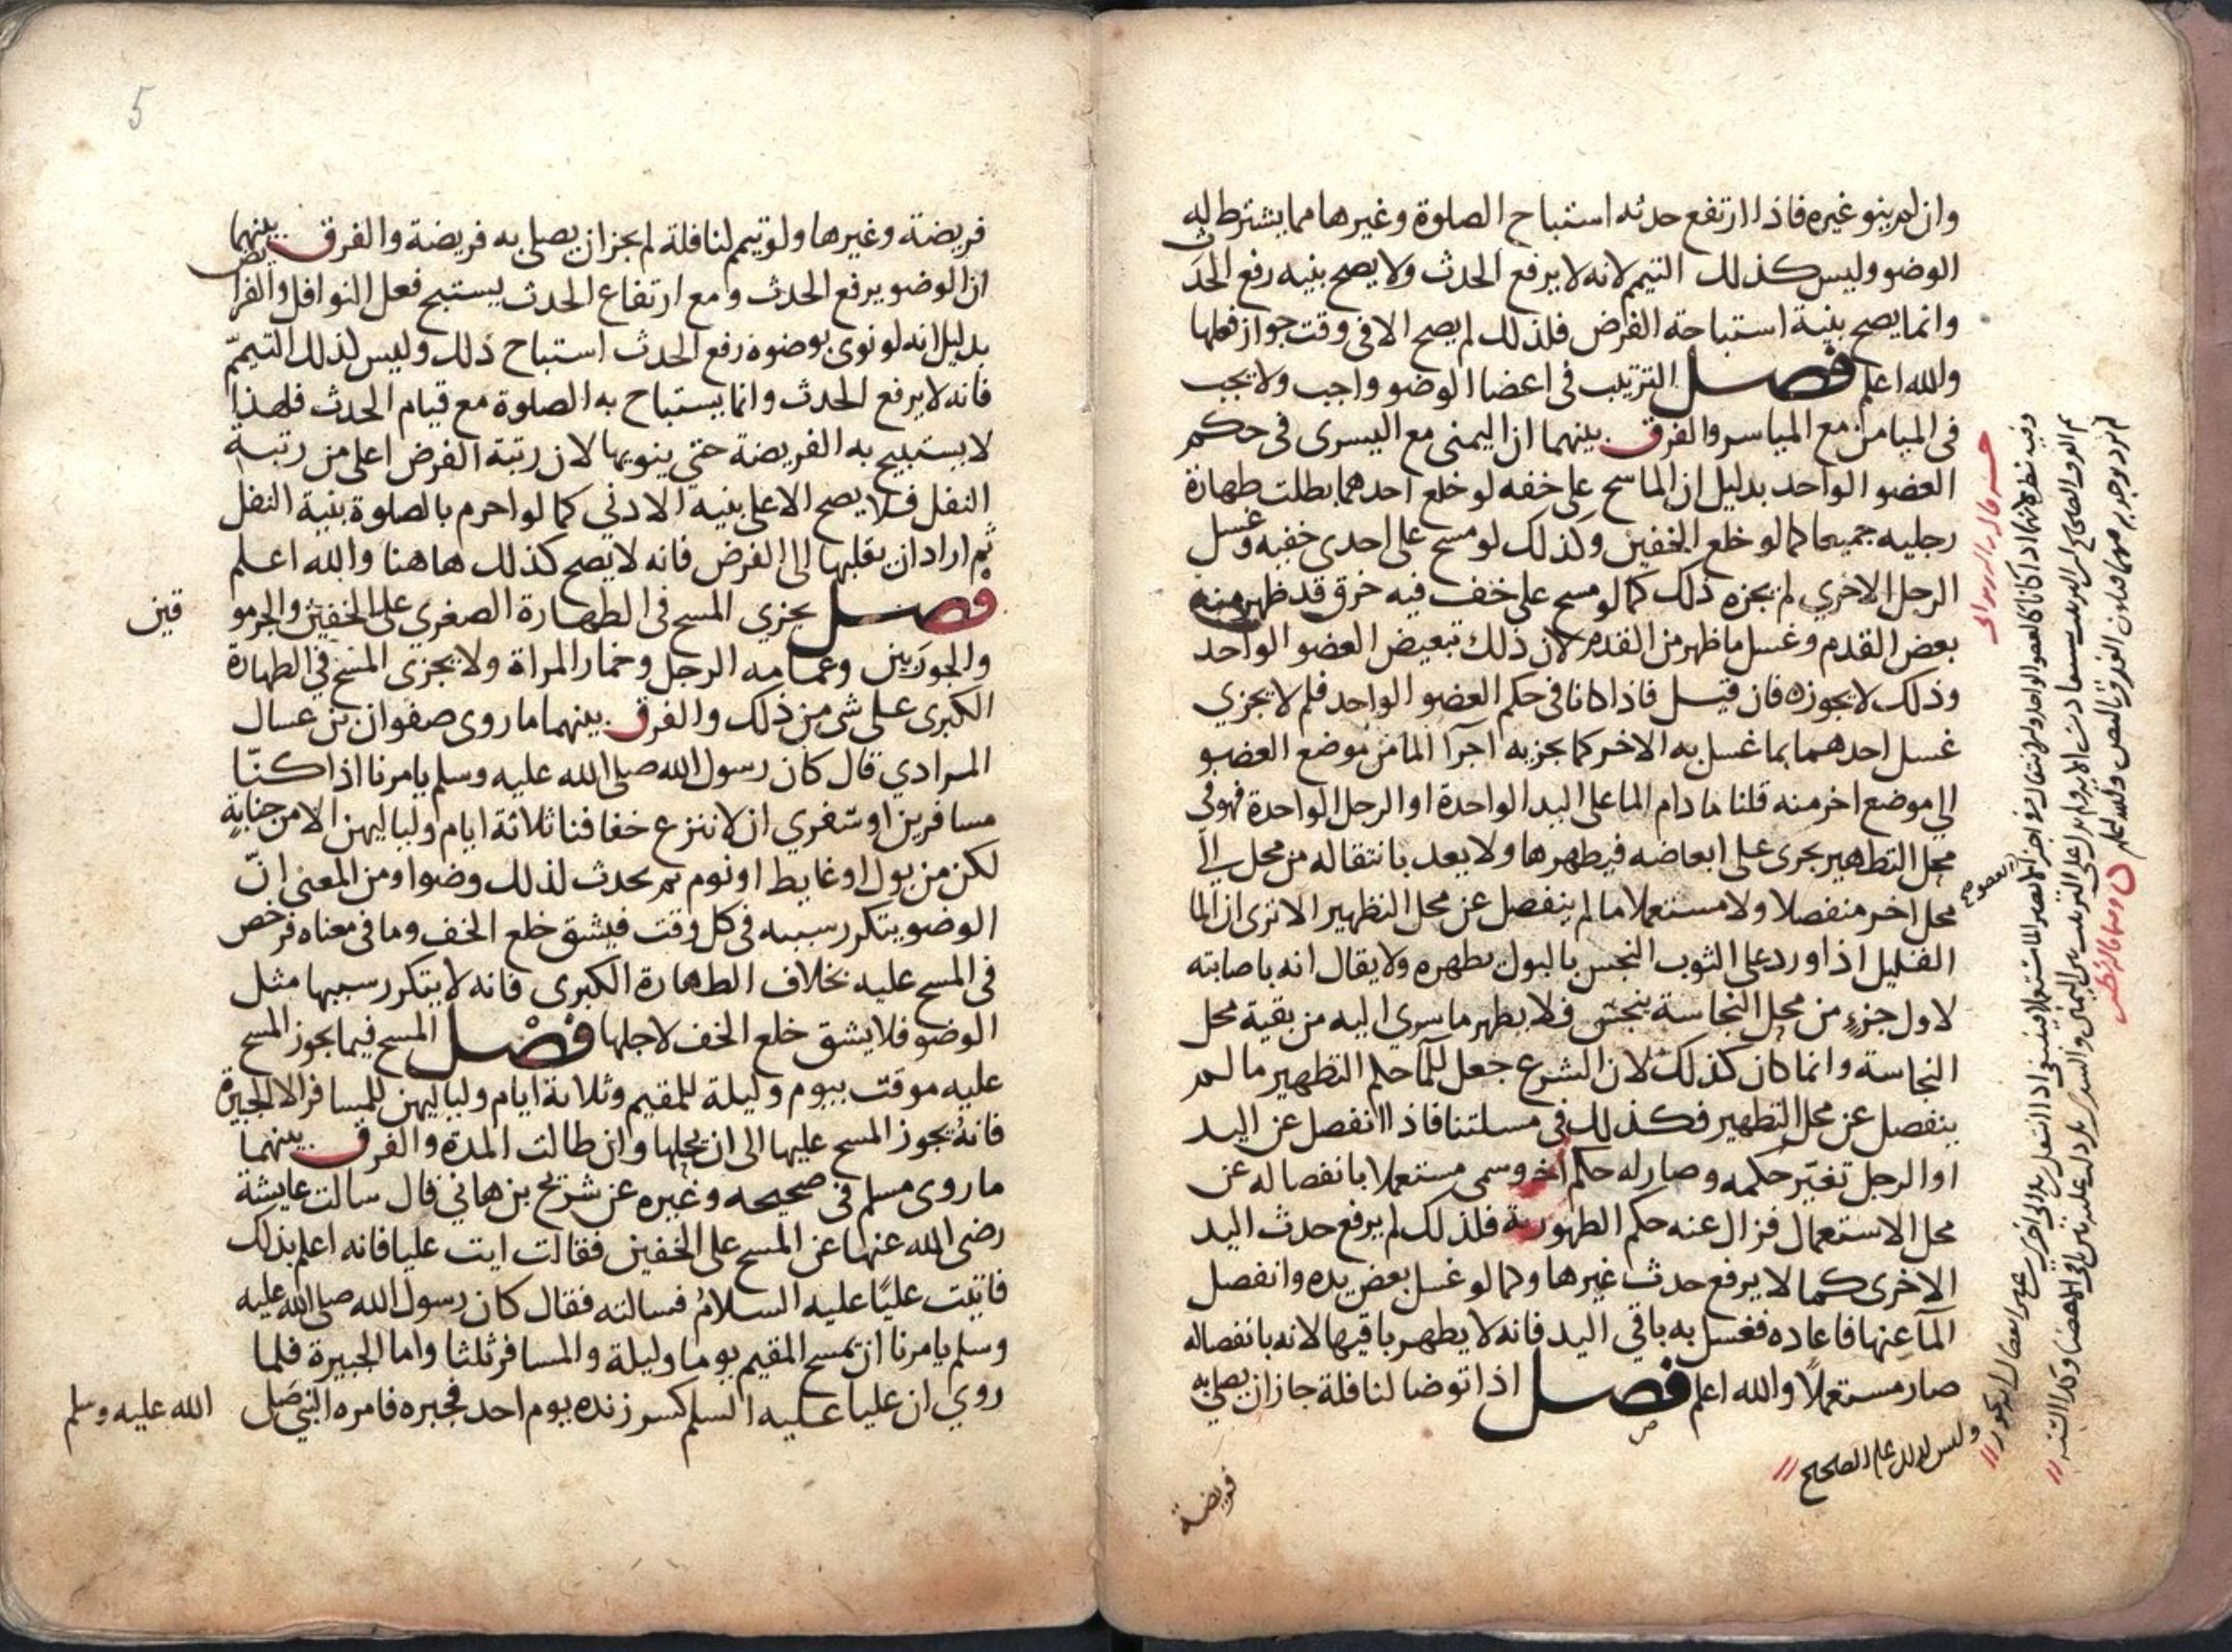 وان لم ينو غيره فاذا ارتفع حدثه استباح الصلوة وغيرها مما يشترط له
الوضو وليس كذلك التيمم لانه لا يرفع الحدث ولا يصح بنيه رفع الحدث
وانما يصح بنية استباحة الفرض فلذلك لم يصح الا في وقت جواز فعلها
والله اعلم فصل الترتيب في اعضا الوضو واجب ولا يجب
في الميامن مع المياسر والفرق بينهما ان اليمنى مع اليسرى في حكم
العضو الواحد بدليل ان الماسح على خفه لو خلع احدهما بطلت طهارة
رجليه جميعا كما لو خلع الخفين وكذلك لو مسح على احدى خفيه وغسل
الرجل الاخري لم يجزه ذلك كما لو مسح على خف فيه خرق قد ظهر منه
بعض القدم وغسل ما ظهر من القدم لان ذلك تبعيض العضو الواحد
وذلك لا يجوزه فان قيل فاذا كانا في حكم العضو الواحد فلم لا يجزي
غسل احدهما بما غسل به الاخر كما يجزيه اجرآ الما من موضع العضو
الي موضع اخر منه قلنا ما دام الما على اليد الواحدة او الرجل الواحدة فهو في
محل التطهير يجرى على ابعاضه فيطهرها ولا يعد بانتقاله من محل الي
محل اخر منفصلا ولا مستعملا ما لم ينفصل عن محل التطهير الا ترى ان الما
القليل اذا ورد على الثوب النجس بالبول يطهره ولا يقال انه باصابته
لاول جزءٍ من محل النجاسة ينجس فلا يطهر ما سري اليه من بقية محل
النجاسة وانما كان كذلك لان الشرع جعل للمآ حكم التطهير ما لم
ينفصل عن محل التطهير فكذلك في مسلتنا فاذا انفصل عن اليد
او الرجل تغيّر حكمه وصار له حكم اخر وسمى مستعملا بانفصاله عن
محل الاستعمال فزال عنه حكم الطهورية فلذلك لم يرفع حدث اليد
الاخرى كما لا يرفع حدث غيرها وكما لو غسل بعض يده وانفصل
المآ عنها فاعاده فغسل به باقي اليد فانه لا يطهر باقيها لانه بانفصاله
صار مستعملاً والله اعلم فصل اذا توضا لنافلة جاز ان يصلي به
فريضة
وليس كذلك على الصحيح
5
فريضة وغيرها ولو تيمم لنافلة لم يجز ان يصلي به فريضة والفرق بينهما
ان الوضو يرفع الحدث ومع ارتفاع الحدث يستبح فعل النوافل والفرايض
بدليل انه لو نوى بوضوه رفع الحدث استباح ذلك وليس لذلك التيممّ
فانه لا يرفع الحدث وانما يستباح به الصلوة مع قيام الحدث فلهذا
لا يستبيح به الفريضة حتي ينويها لان رتبة الفرض اعلى من رتبة
النفل فلا يصح الاعلى بنيه الادني كما لو احرم بالصلوة بنية النفل
ثم اراد ان يقلبها الى الفرض فانه لا يصح كذلك هاهنا والله اعلم
فصل يجزي المسح في الطهارة الصغري على الخفين والجرمو قين
والجوربين وعمامه الرجل وخمار المراة ولا يجزي المسح في الطهارة
الكبرى على شي من ذلك والفرق بينهما ما روى صفوان بن عسال
المرادي قال كان رسول الله صلى الله عليه وسلم يامرنا اذا كنّا
مسافرين او سفري ان لا ننزع خفافنا ثلاثة ايام ولياليهن الا من جنابةٍ
لكن من بول او غايط او نوم ثم يحدث لذلك وضوا ومن المعنى انّ
الوضو يتكرر سببه في كل وقت فيشق خلع الخف وما في معناه فرخص
في المسح عليه بخلاف الطهارة الكبرى فانه لا يتكرر سببها مثل
الوضو فلا يشق خلع الخف لاجلها فصل المسح فيما يجوز المسح
عليه موقت بيوم وليلة للمقيم وثلاثة ايام ولياليهن للمسافر الا الجبيرة
فانهُ يجوز المسح عليها الى ان يحلها وان طالت المدة والفرق بينهما
ما روى مسلم في صحيحه وغيره عن شريح بن هاني قال سالت عايشة
رضى الله عنها عن المسح على الخفين فقالت ايت عليا فانه اعلم بذلك
فاتيت عليًا عليه السلام فسالته فقال كان رسول الله صلى الله عليه
وسلم يامرنا ان يمسح المقيم يوما وليلة والمسافر ثلثا واما الجبيرة فلما
روي ان عليا عليه السلم كسر زنده يوم احد فجبره فامره النبي صلى الله عليه وسلم